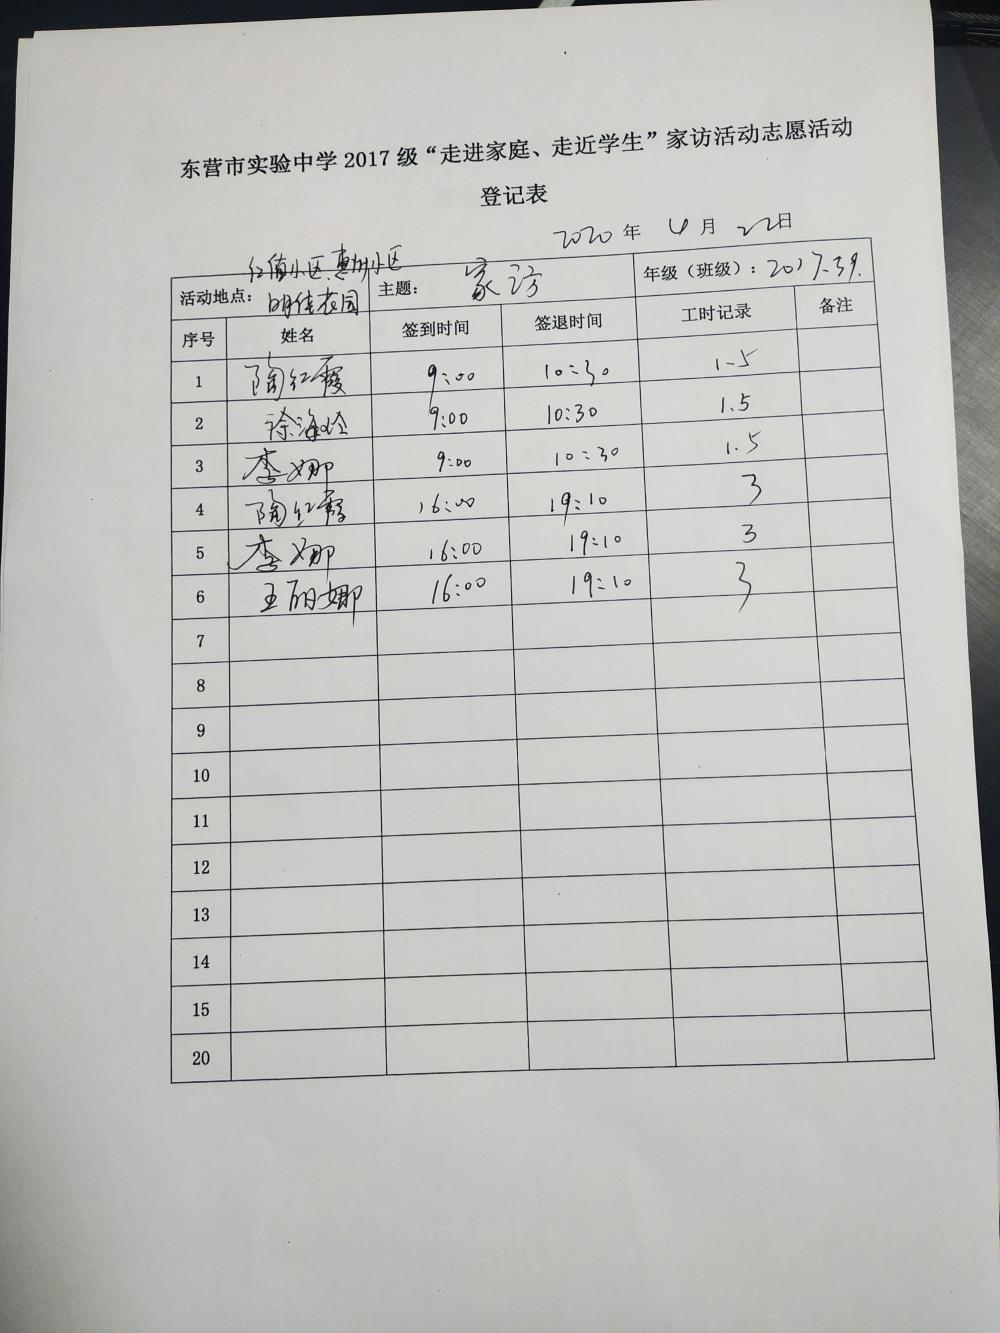 东营市实验中学 2017 级“走进家庭、走近学生”家访活动志愿活动
登记表
2020 年 4 月 22 日
小区、惠州小区
活动地点： 明佳花园 主题： 家访 年级（班级）：2017.39.
序号 姓名 签到时间 签退时间 工时记录 备注
1 陶红霞 9:00 10:30 1.5
2 徐海玲 9:00 10:30 1.5
3 李娜 9:00 10:30 1.5
4 陶红霞 16:00 19:10 3
5 李娜 16:00 19:10 3
6 王丽娜 16:00 19:10 3
7
8
9
10
11
12
13
14
15
20